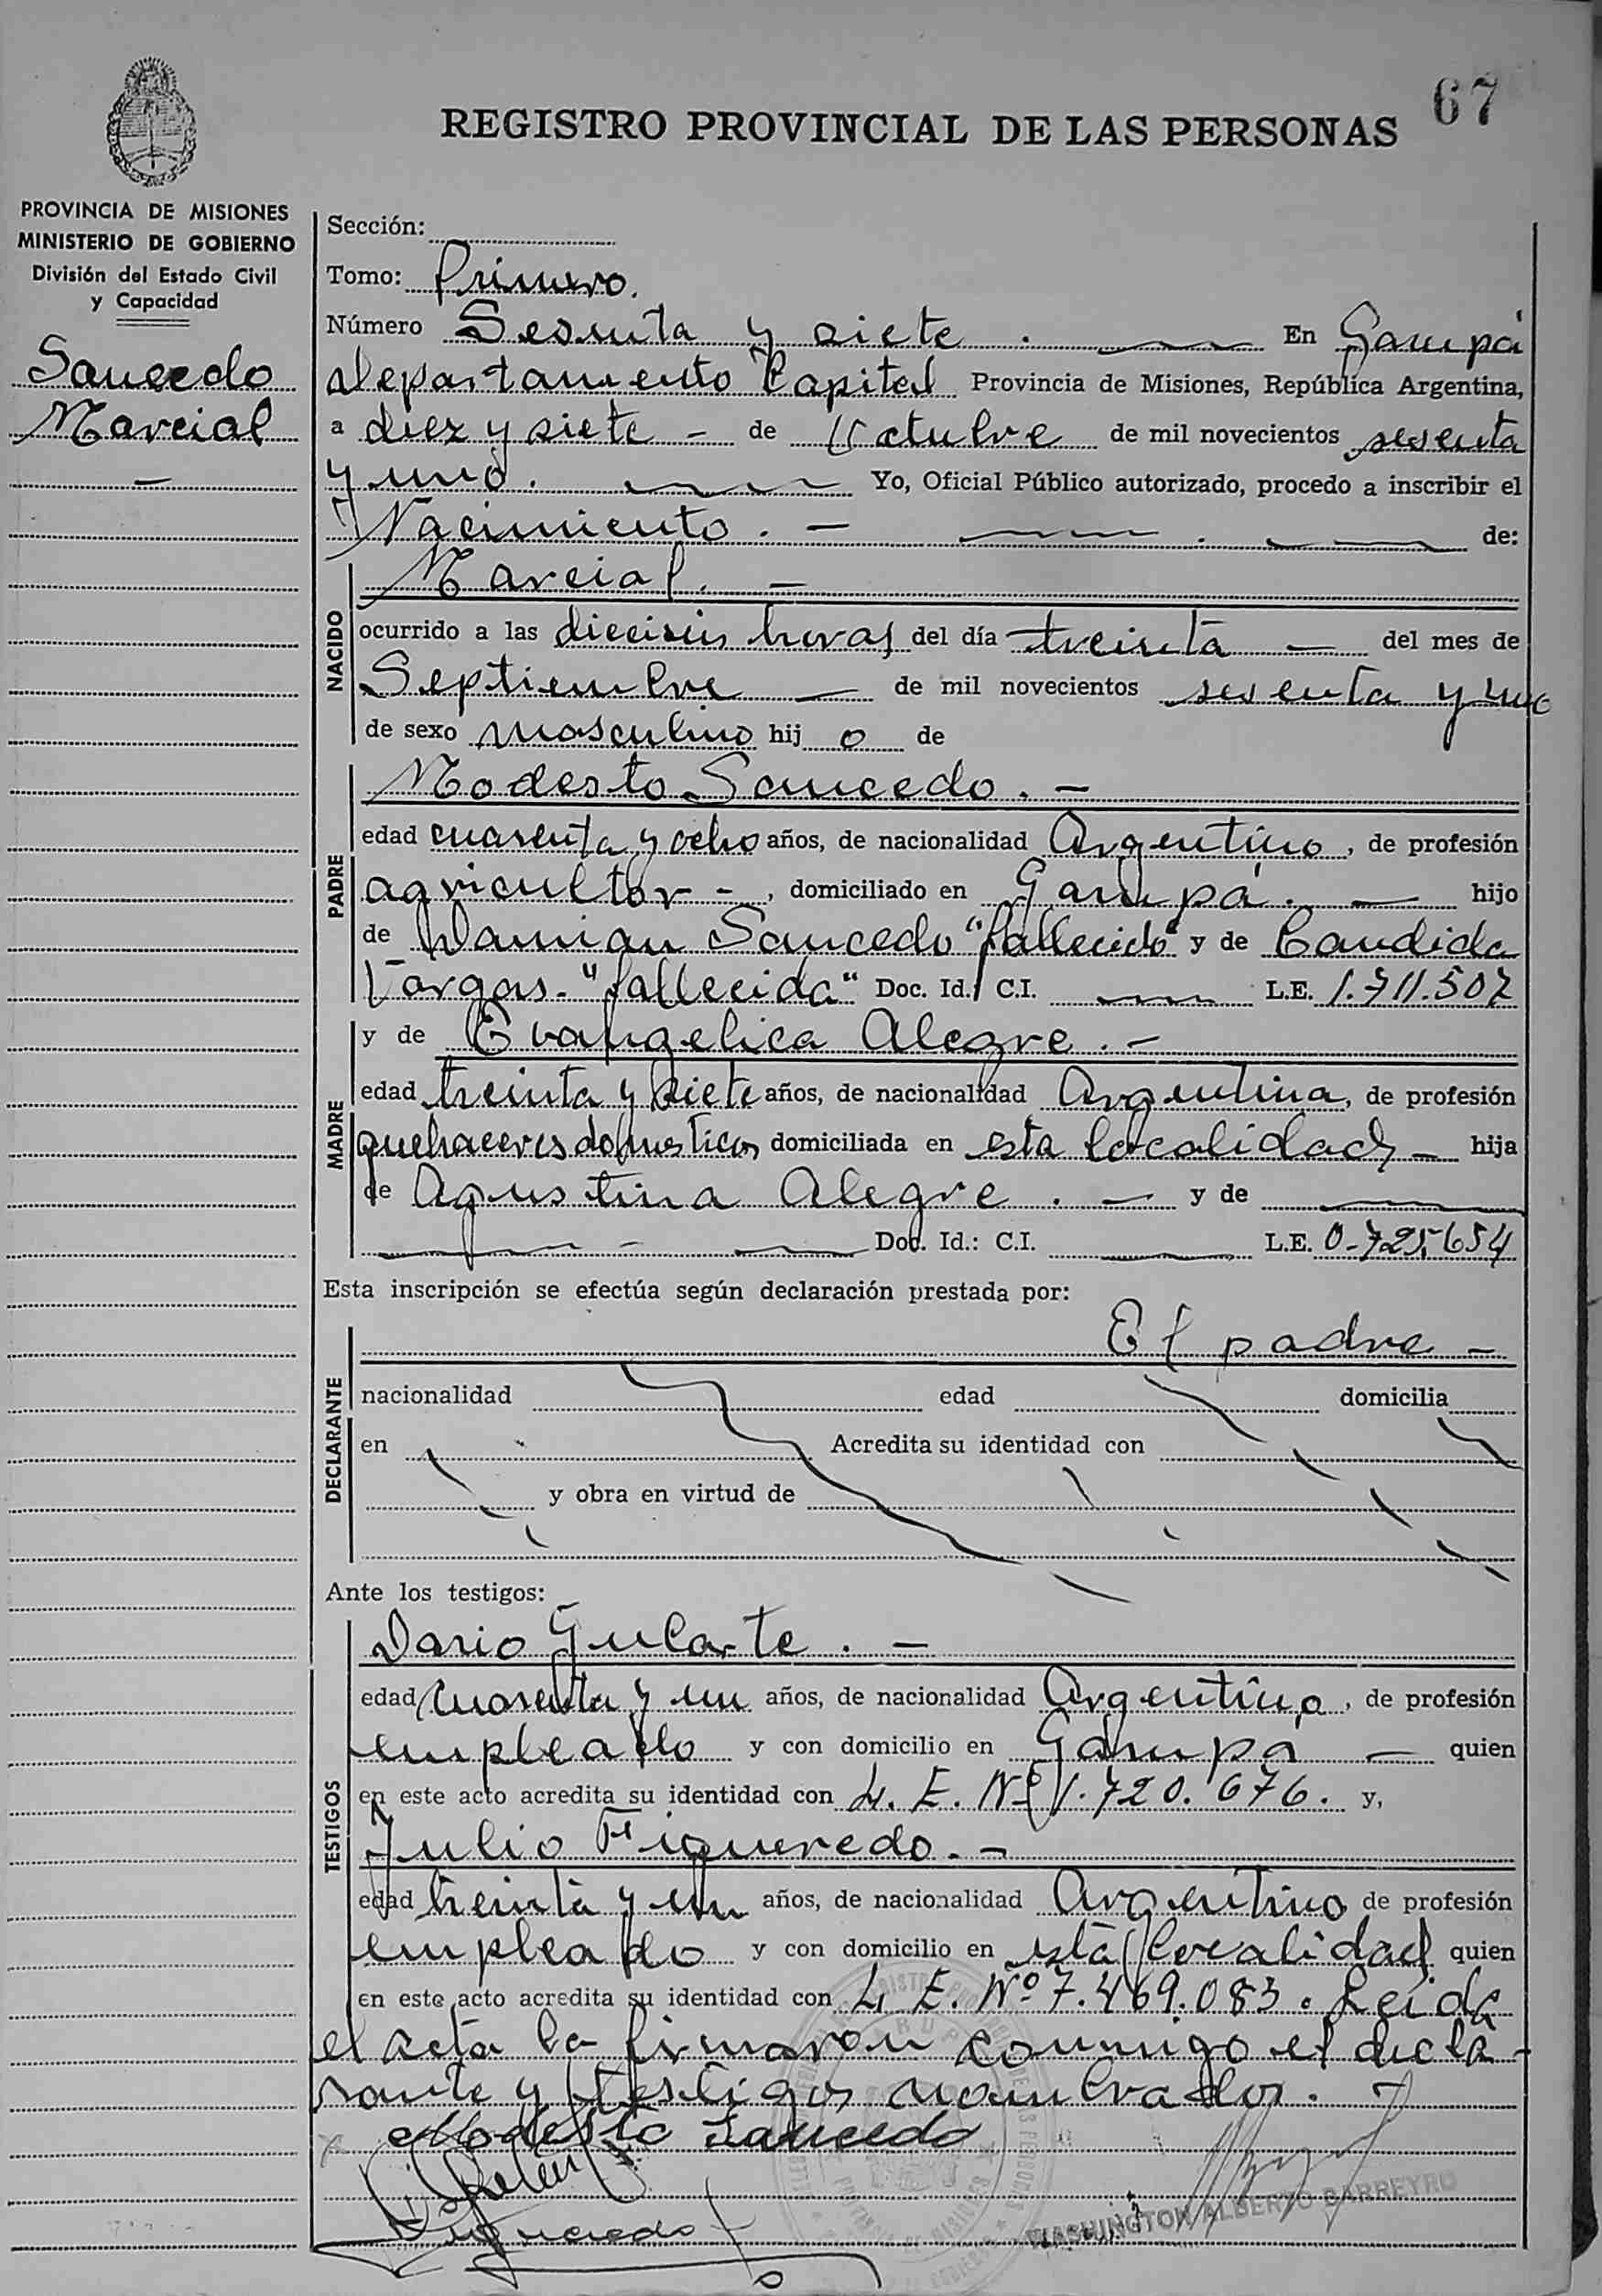 67
REGISTRO PROVINCIAL DE LAS PERSONAS
PROVINCIA DE MISIONES
MINISTERIO DE GOBIERNO
División del Estado Civil
y Capacidad
Saucedo
Marcial
Sección:
Tomo: Primero.
Número Sesenta y siete. En Garupá
departamento Capital Provincia de Misiones, República Argentina,
a diez y siete - de Octubre de mil novecientos sesenta
y uno. Yo, Oficial Público autorizado, procedo a inscribir el
Nacimiento. - de:
NACIDO
Marcial. -
ocurrido a las dieciseis horas del día treinta - del mes de
Septiembre - de mil novecientos sesenta y uno
de sexo masculino hij o de
PADRE
Modesto Saucedo. -
edad cuarenta y ocho años, de nacionalidad Argentino, de profesión
agricultor -, domiciliado en Garupá. - hijo
de Damian Saucedo "fallecido" y de Candida
Vargas. "fallecida" Doc. Id.: C.I. L.E. 1.711.507
MADRE
y de Evangelica Alegre. -
edad treinta y siete años, de nacionalidad Argentina, de profesión
quehaceres domesticos domiciliada en esta localidad - hija
de Agustina Alegre. - y de
Doc. Id.: C.I. L.E. 0-725.654
Esta inscripción se efectúa según declaración prestada por:
DECLARANTE
El padre -
nacionalidad edad domicilia
en Acredita su identidad con
y obra en virtud de
Ante los testigos:
TESTIGOS
Dario Gularte. -
edad cuarenta y un años, de nacionalidad Argentino, de profesión
empleado y con domicilio en Garupá - quien
en este acto acredita su identidad con L. E. Nº 1.720.676. y,
Julio Figueredo. -
edad treinta y un años, de nacionalidad Argentino de profesión
empleado y con domicilio en esta localidad quien
en este acto acredita su identidad con L. E. Nº 7.469.083. Leida
el acta la firmaron conmigo el decla-
rante y testigos nombrados. -
Modesto Saucedo
Figueredo
WASHINGTON ALBERTO BARREYRO